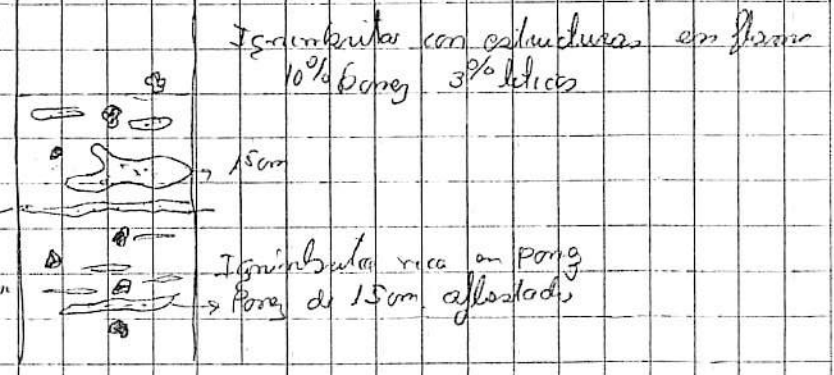 Ignimbritas con estructuras en flama
10% Pomez 3% liticos
→ 15cm
Ignimbrita rica en Pomez
→ Pomez de 15cm aflastada